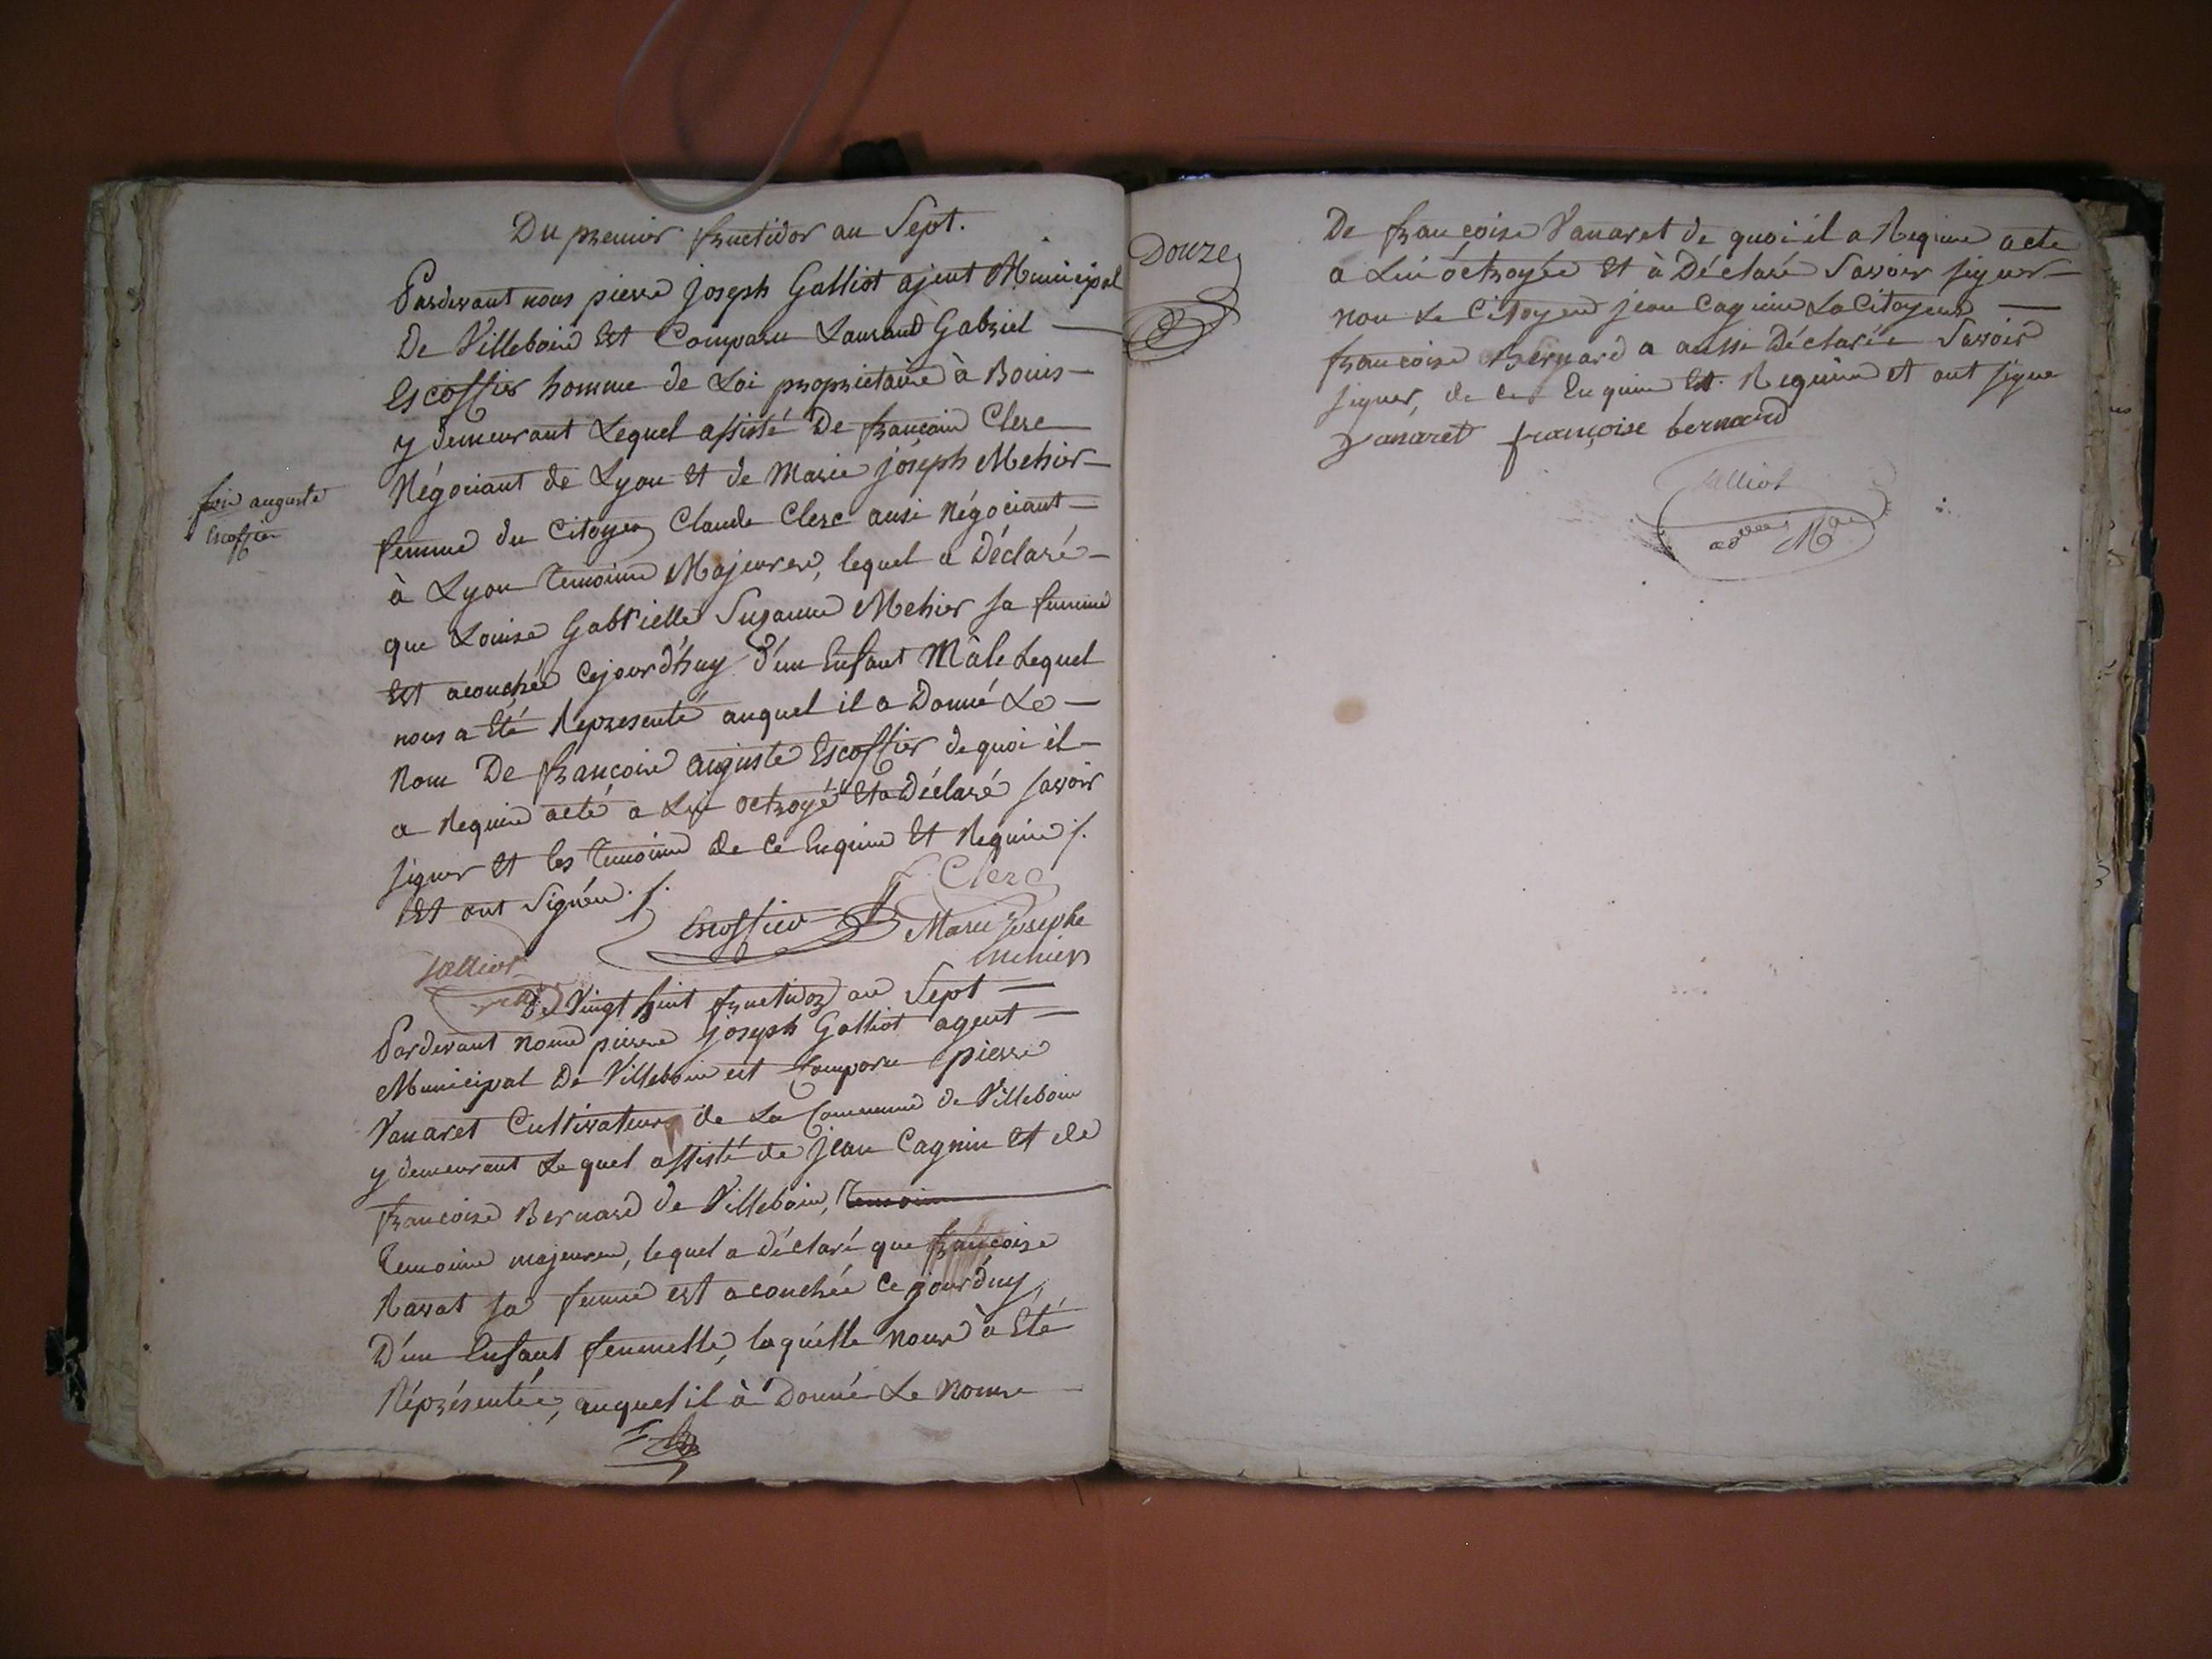 Du premier fructidor an Sept.
Pardevant nous pierre joseph Galliot ajent Municipal
De Villebois Est Comparu Laurand Gabriel
Escoffier homme de Loi proprietaire à Bouis
y demeurant Lequel assisté De françois Clerc
Négociant de Lyon et de Marie joseph Mehier
femme du Citoyen Claude Clerc ausi Négociant
à Lyon temoins Majeures, lequel a Déclaré
que Louise Gabrielle Suzanne Mehier sa femme
Est acouchée Cejourd'huy d'un Enfant Mâle Lequel
nous a Eté Representé auquel il a Donné Le
Nom De françois auguste Escoffier de quoi il
a Requis acte a Lui octroyé Et a Déclaré savoir
signer Et les temoins de Ce Enquis Et Requis /.
Et ont signés ./.
fois auguste
Escoffier
F. Clerc
Escoffier
Marie Josephe
mehier
Galliot
Du Vingt huit fructidor an Sept
Pardevant nous pierre joseph Galliot agent
Municipal De Villebois est Comparu pierre
Vanaret Cultivateur de La Commune de Villebois
y demeurant Lequel assisté de Jean Cagnin et de
françoise Bernard de Villebois, temoin
temoins majeures, lequel a déclaré que françoise
Ravat sa femme est acouchée Ce jourd'uy
D'un Enfant femmelle, laquelle nous à Eté
Réprésentée, auquel il à Donné Le Nom
Douze
De françoise Vanaret de quoi il a Requis acte
a Lui octroyée Et à Déclaré Savoir signer
non Le Citoyen jean Cagnin La Citoyene
françoise Bernard a aussi Déclarée Savoir
signer, de ce Enquis Et Requis et ont signe
vanaret françoise bernard
Galliot